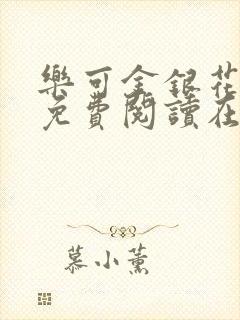 樂可金銀花
免費閱讀在
慕小薰